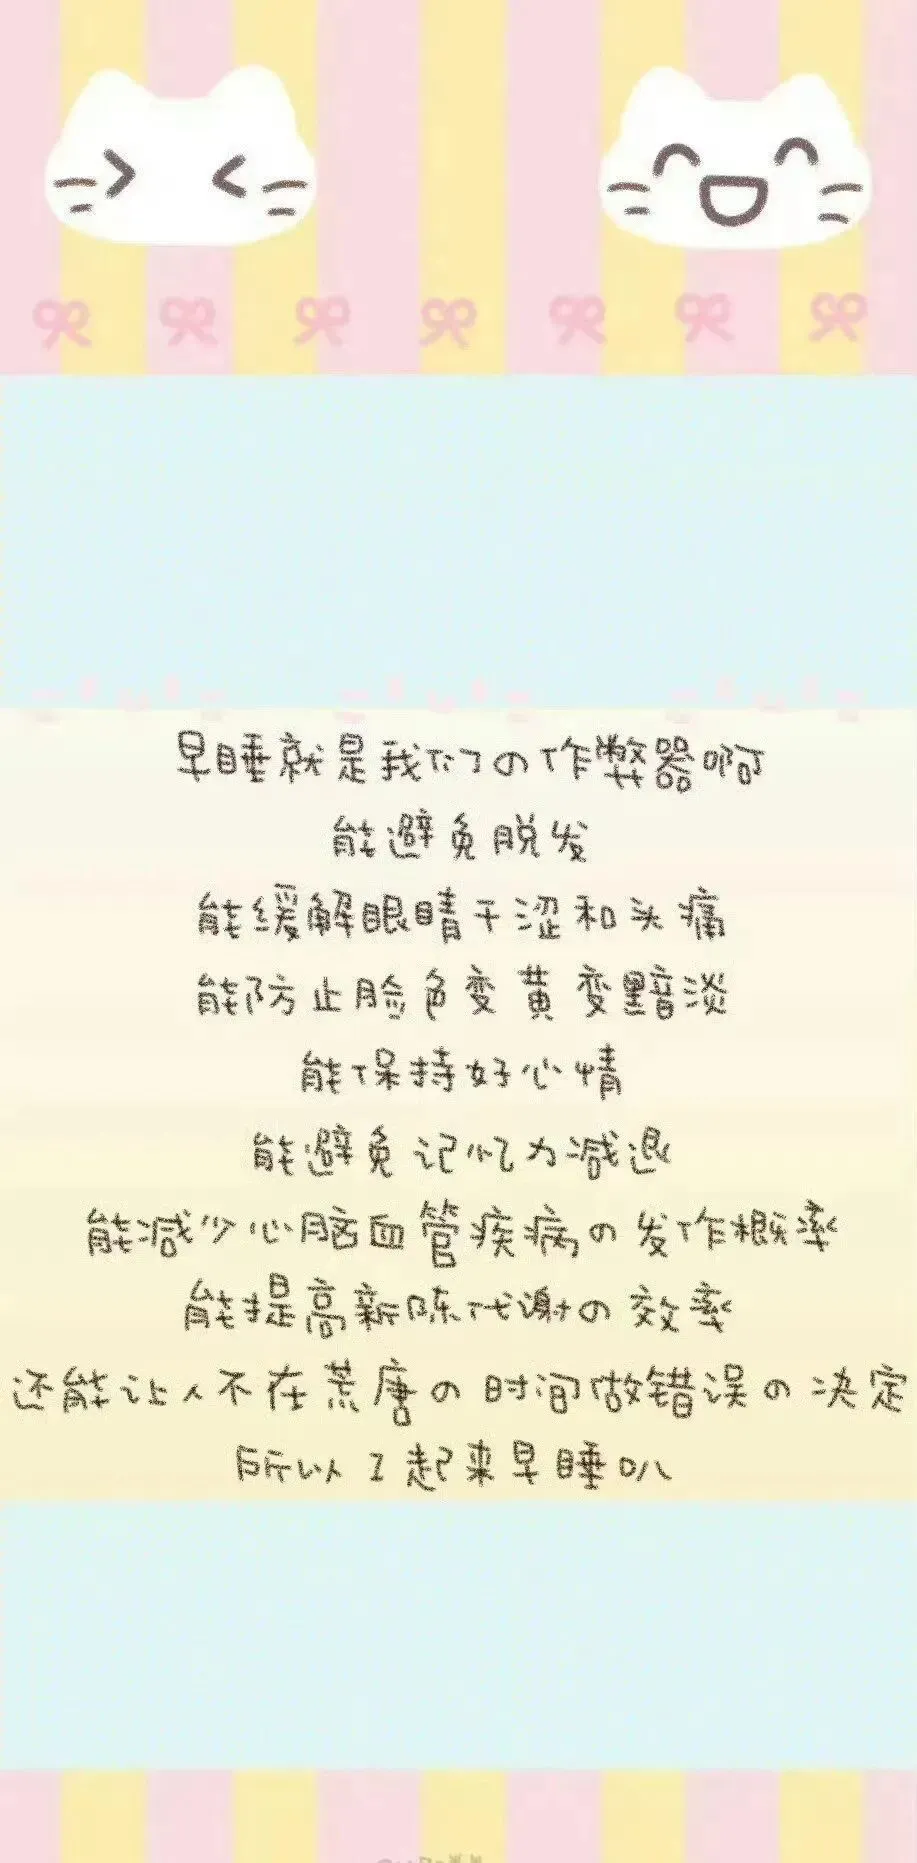 早睡就是我们の作弊器啊
能避免脱发
能缓解眼睛干涩和头痛
能防止脸色变黄变黯淡
能保持好心情
能避免记忆力减退
能减少心脑血管疾病の发作概率
能提高新陈代谢の效率
还能让人不在荒唐の时间做错误の决定
所以1起来早睡叭